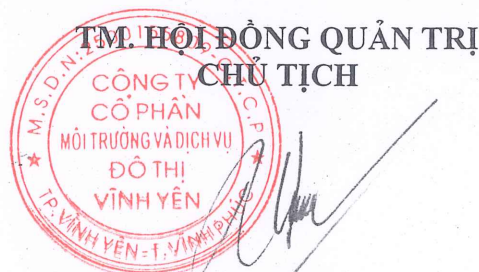 TM. HỘI ĐỒNG QUẢN TRỊ
CHỦ TỊCH
M.S.D.N:
C.T.C.P
CÔNG TY
CỔ PHẦN
MÔI TRƯỜNG VÀ DỊCH VỤ
ĐÔ THỊ
VĨNH YÊN
TP. VĨNH YÊN - T. VĨNH PHÚC